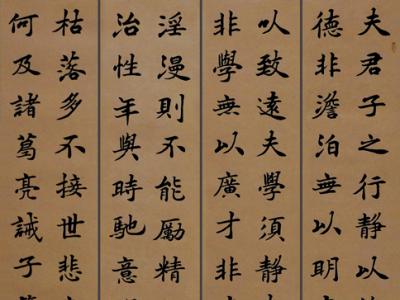 夫君子之行靜以
德非澹泊無以明
以致遠夫學須靜
非學無以廣才非
淫漫則不能勵精
治性年與時馳意
枯落多不接世悲
何及諸葛亮誡子